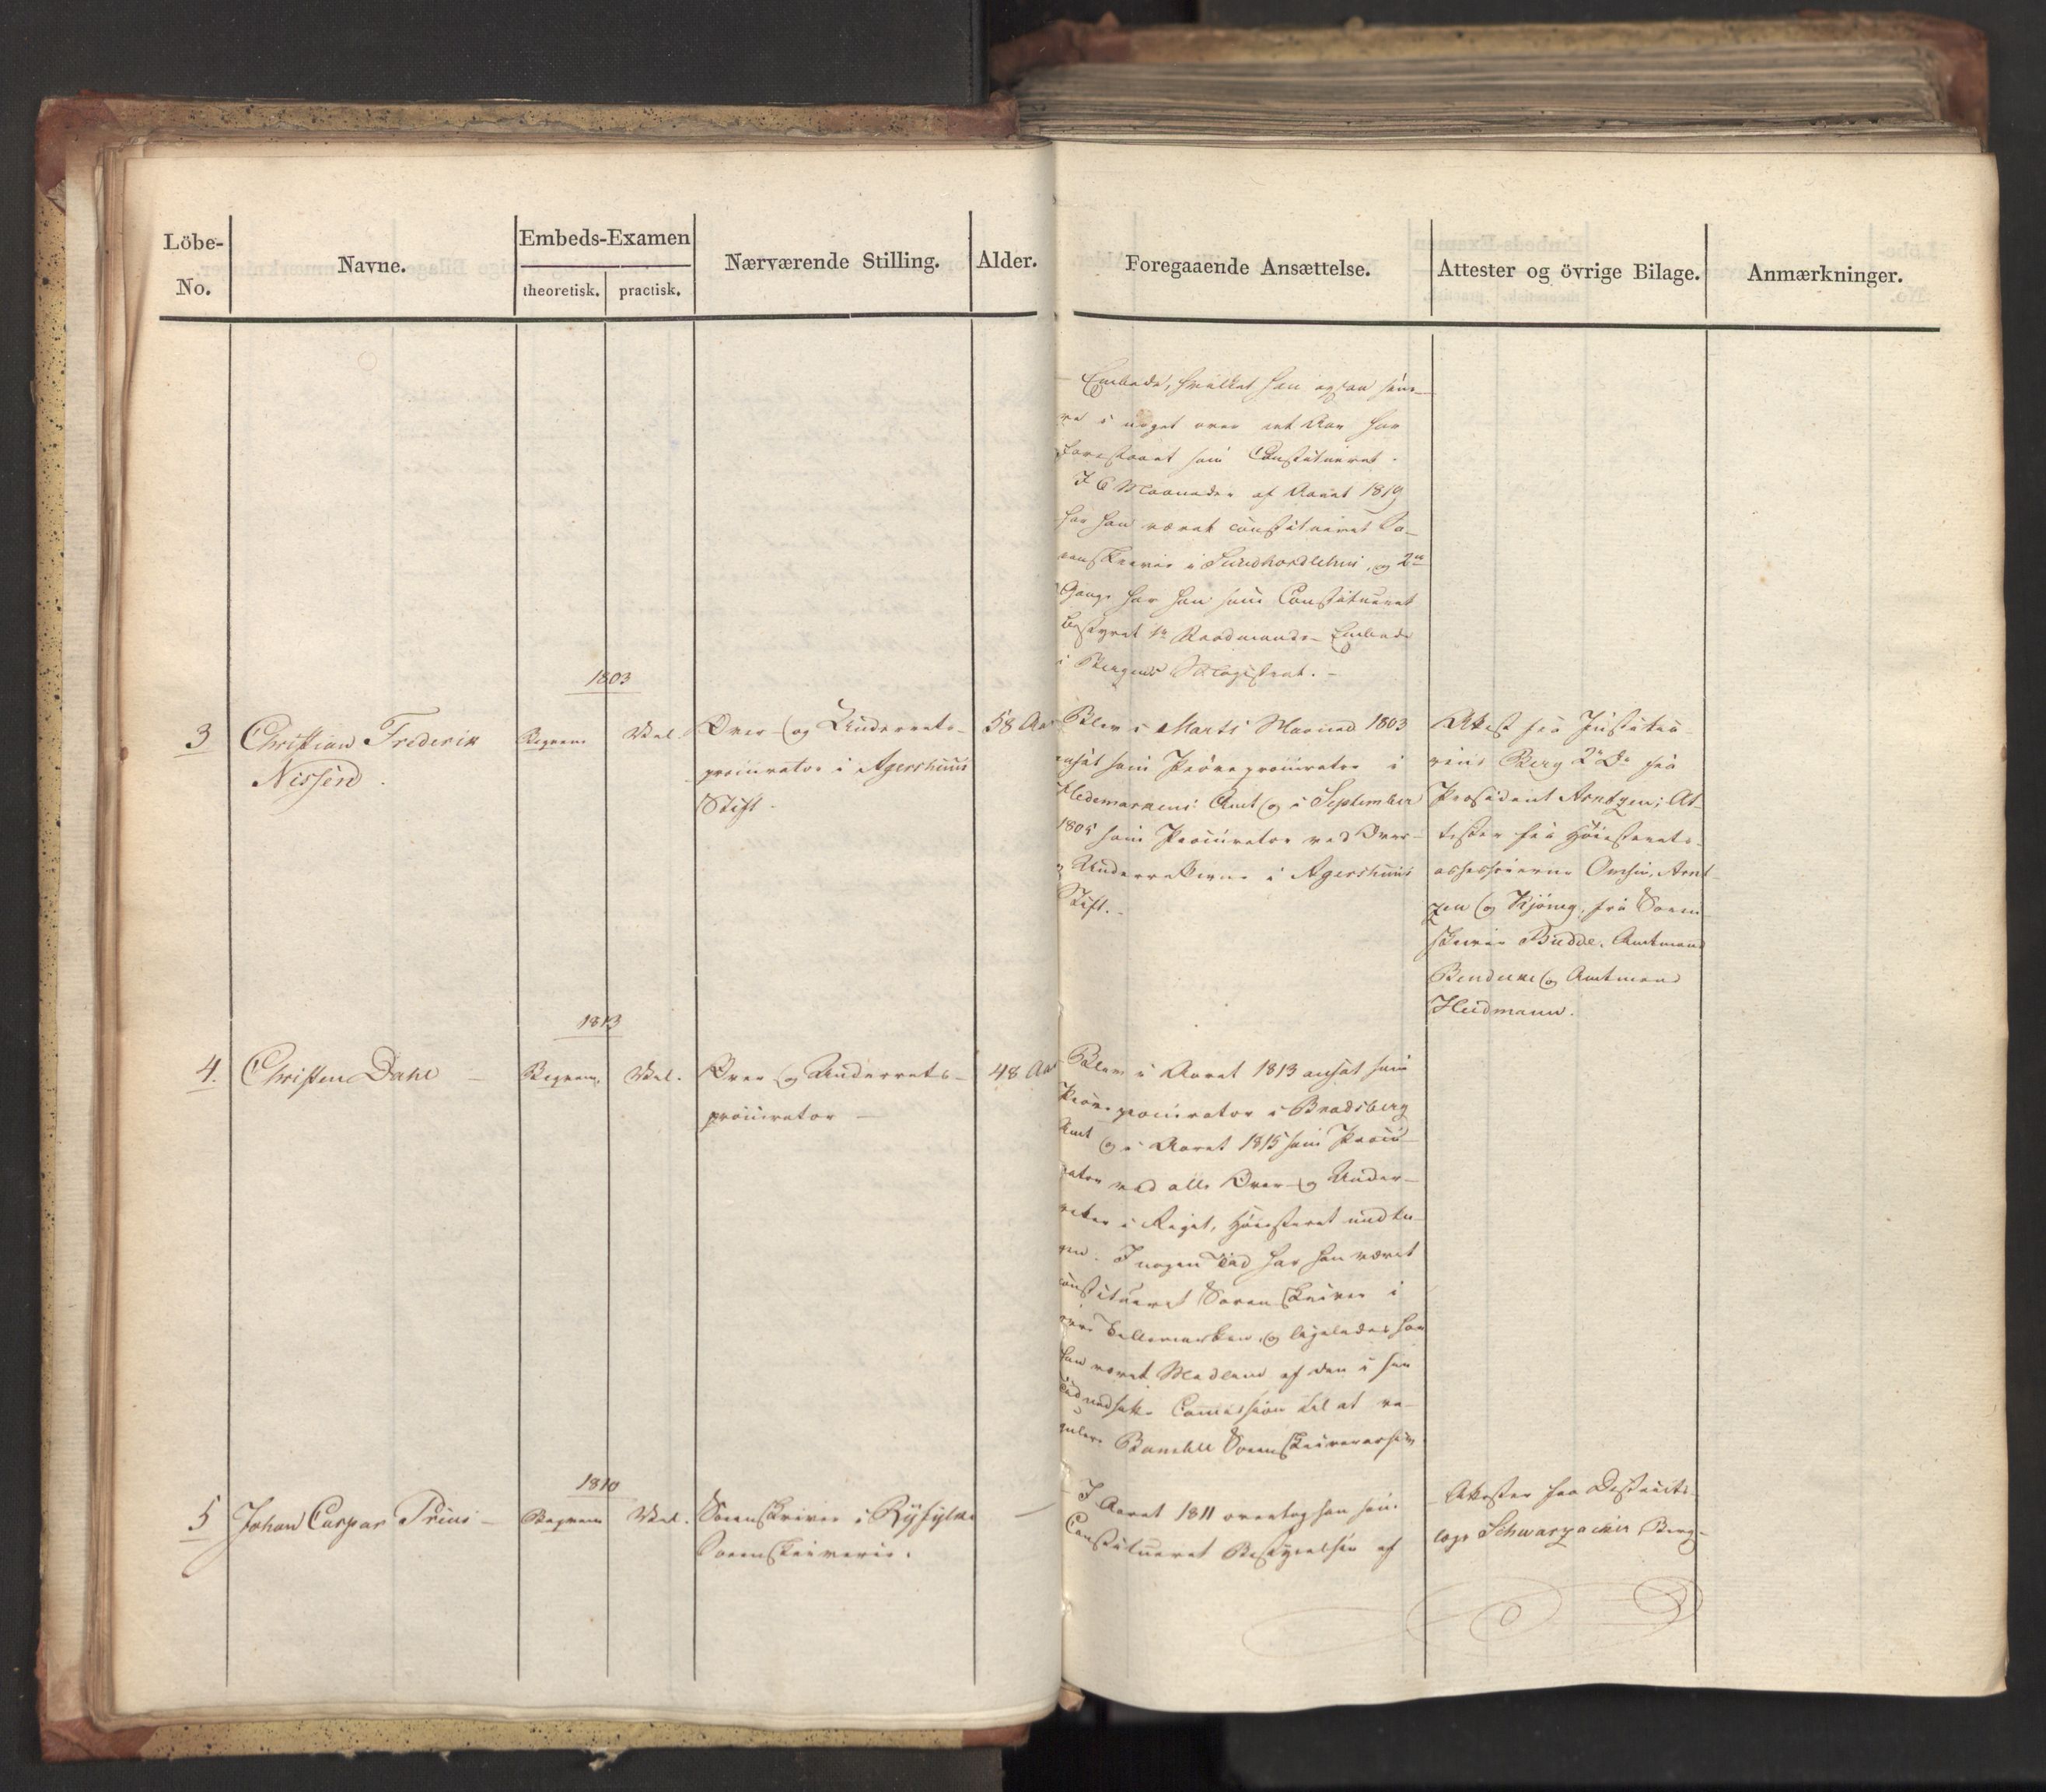 Löbe-
No.
Navne.
Embeds-Examen
theoretisk.
practisk.
Nærværende Stilling.
Alder.
Foregaaende Ansættelse.
Attester og övrige Bilage.
Anmærkninger.
Embede, hvilket han ogsaa sene-
re i noget over eet Aar har
forestaaet som Constitueret.
I 6 Maaneder af Aaret 1819
har han været constitueret So-
renskriver i Sundhordlehn, og 2de
Gange har han som Constitueret
bestyret 1te Raadmands-Embede
i Bergens Magistrat. -
1803
3
Christian Frederik
Nissen.
Beqvem
Vel.
Over- og Underrets-
procurator i Agershuus
Stift.
58 Aar
Blev i Marts Maaned 1803
ansat som Pröveprocurator i
Hedemarkens Amt og i September
1805 som Procurator ved Over-
og Underretterne i Agershuus
Stift. -
Attest fra Justitsraad
Berg 2 Do fra
Præsident Arntzen; At-
tester fra Höiesterets-
assessorerne Omsen, Arnt-
zen og Kjönig, fra Soren-
skriver Budde, Amtmand
Bendeke og Amtmand
Heidmann.
1813
4.
Christen Dahl -
Beqvem.
Vel.
Over- og Underrets-
procurator -
48 Aar
Blev i Aaret 1813 ansat som
Pröveprocurator i Bradsberg
Amt og i Aaret 1815 som Procu-
rator ved alle Over- og Under-
retter i Riget, Höiesteret undta-
gen. I nogen Tid har han været
constitueret Sorenskriver i
övre Tellemarken, og ligeledes har
han været Medlem af den i sin
Tid nedsatte Commission til at re-
gulere Bamble Sorenskriverie
1810
5
Johan Caspar Preus -
Beqvem
Vel.
Sorenskriver i Ryfylke
Sorenskriverie.
-
I Aaret 1811 overtog han som
Constitueret Bestyrelsen af
Attester fra Districts-
læge Schwarzacher, Berg-